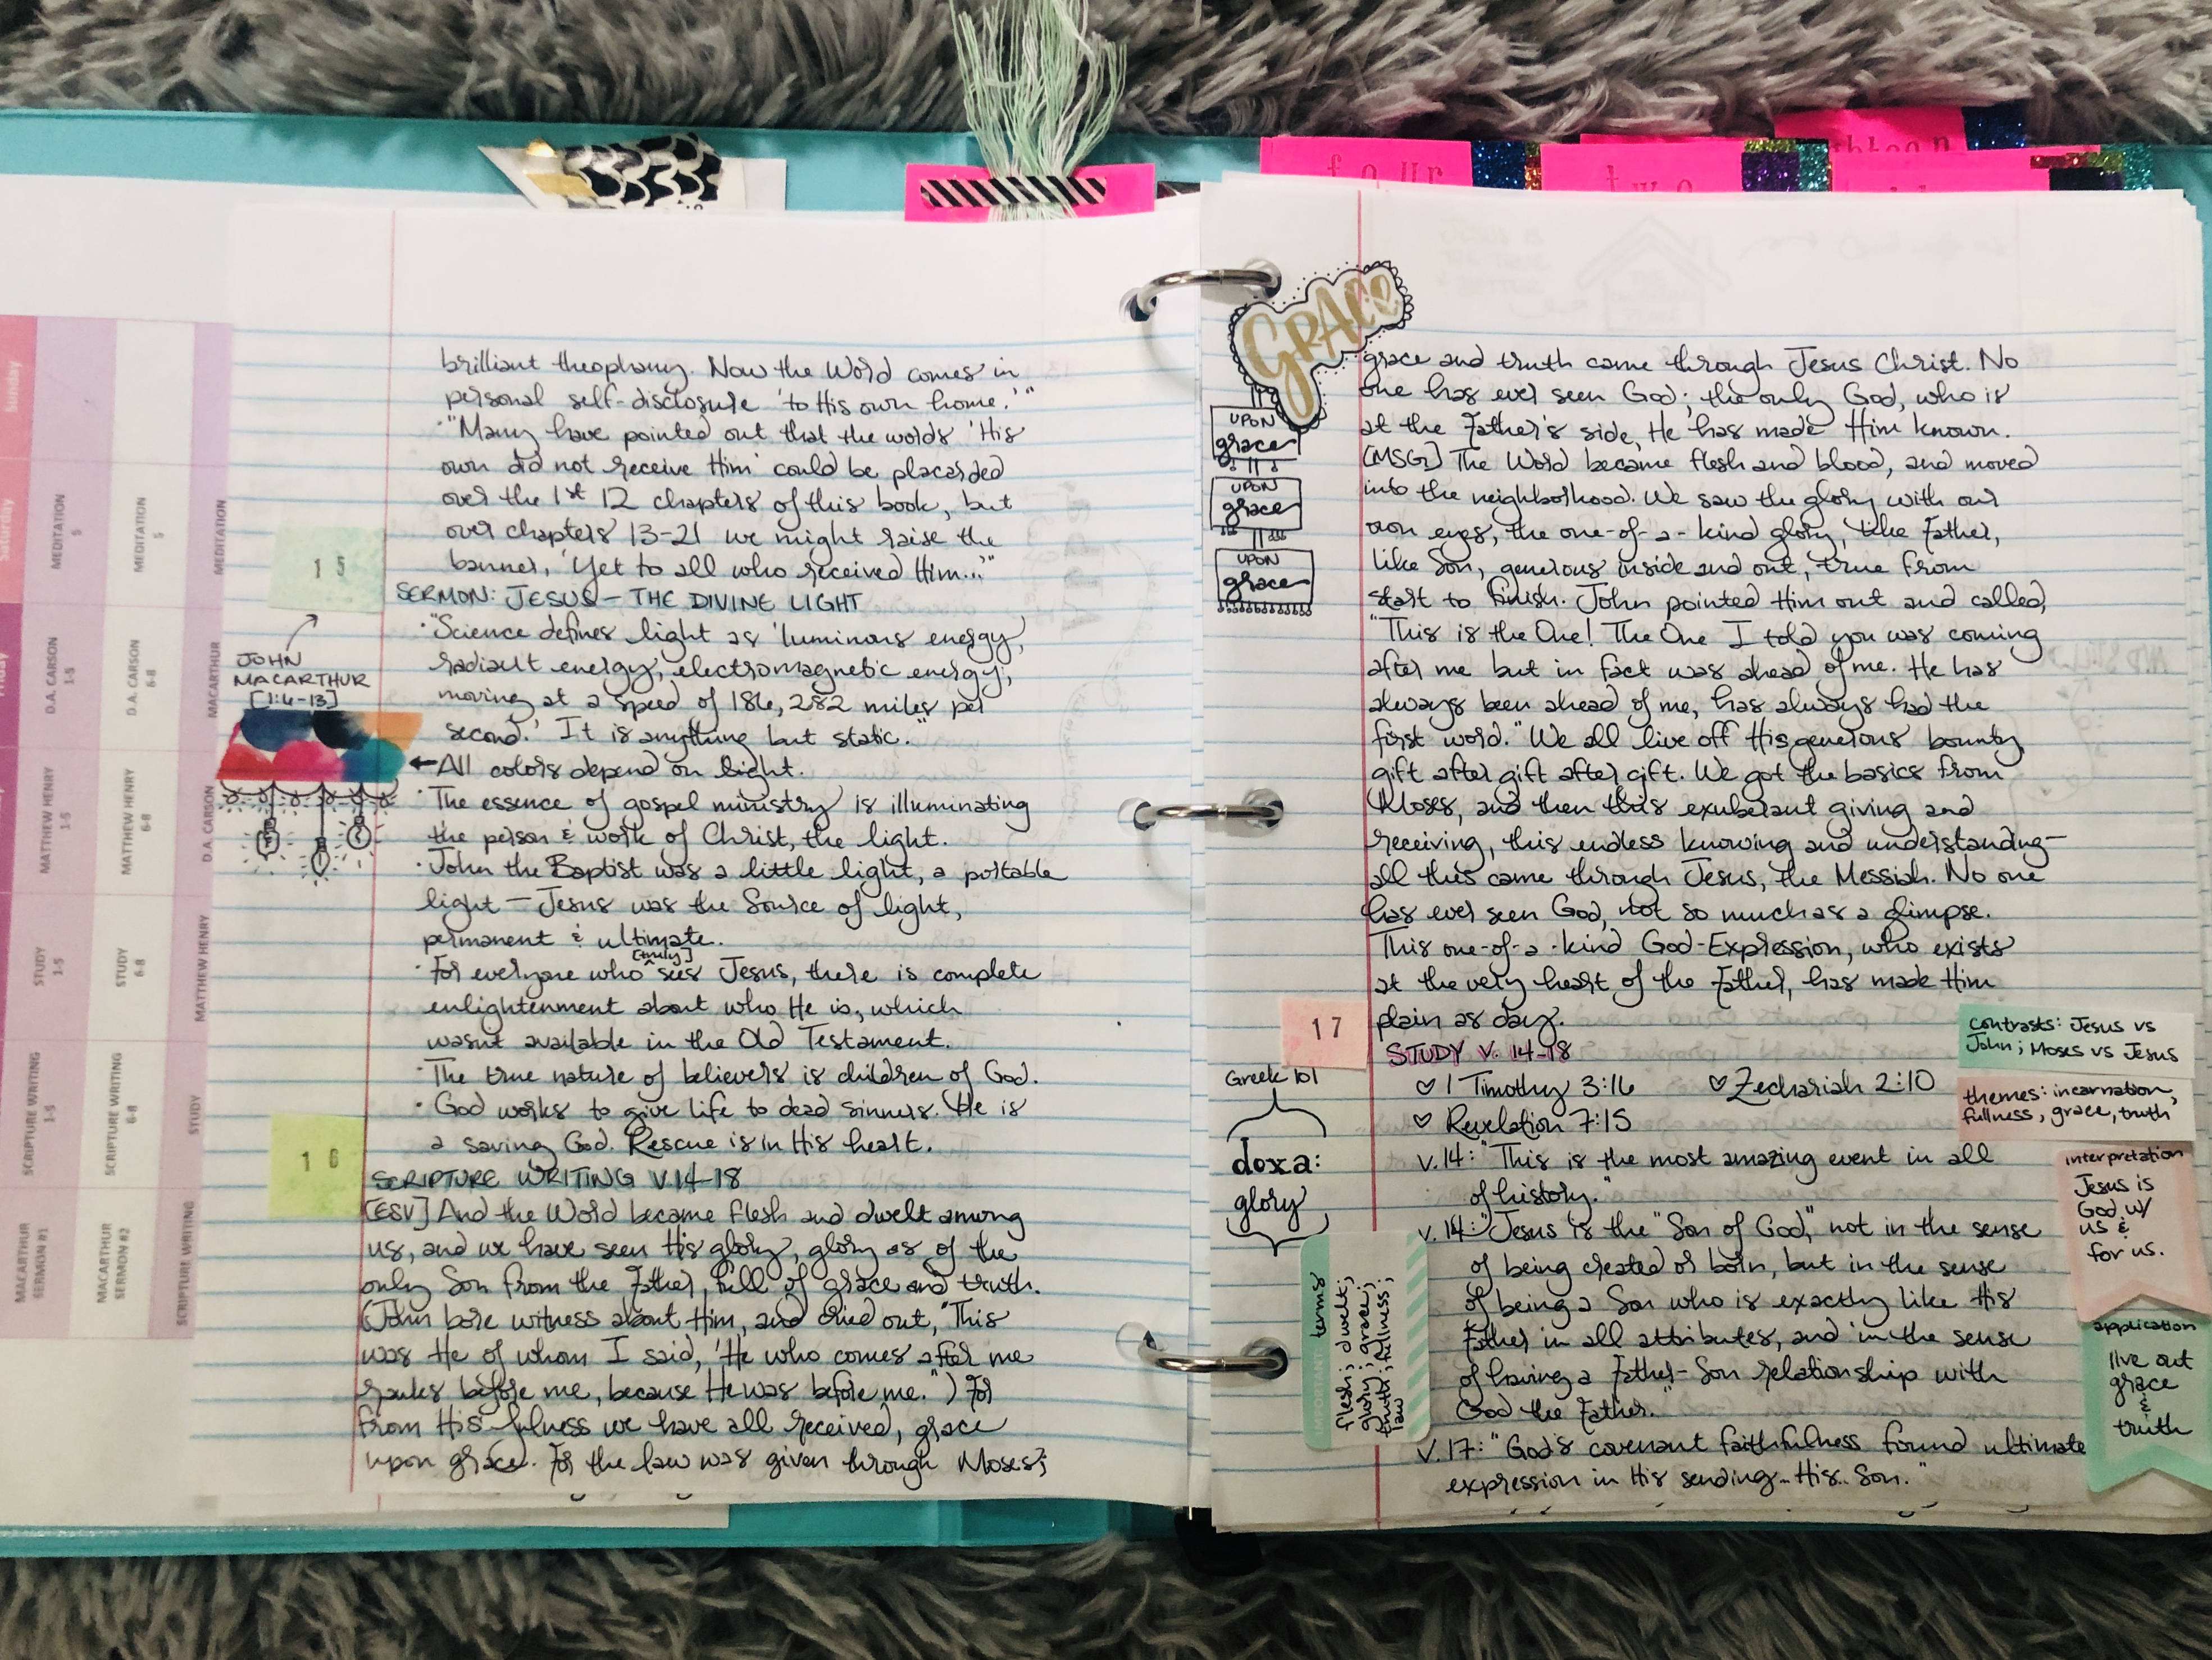 four
two
Sunday
Saturday
MEDITATION
5
MEDITATION
5
MEDITATION
D.A. CARSON
1-5
D.A. CARSON
6-8
MACARTHUR
MATTHEW HENRY
1-5
MATTHEW HENRY
6-8
D.A. CARSON
STUDY
1-5
STUDY
6-8
MATTHEW HENRY
SCRIPTURE WRITING
1-5
SCRIPTURE WRITING
6-8
STUDY
MACARTHUR
SERMON #1
MACARTHUR
SERMON #2
SCRIPTURE WRITING
brilliant theophany. Now the Word comes in
personal self-disclosure 'to His own home.'"
· "Many have pointed out that the words 'His
own did not receive Him' could be placarded
over the 1st 12 chapters of this book, but
over chapters 13-21 we might raise the
banner, 'Yet to all who received Him...'"
15
SERMON: JESUS - THE DIVINE LIGHT
JOHN
MACARTHUR
[1:6-13]
· "Science defines light as 'luminous energy,
radiant energy, electromagnetic energy,
moving at a speed of 186,282 miles per
second.' It is anything but static."
← All colors depend on light.
· The essence of gospel ministry is illuminating
the person & work of Christ, the light.
· John the Baptist was a little light, a portable
light — Jesus was the Source of light,
permanent & ultimate.
[truly]
· For everyone who ^ sees Jesus, there is complete
enlightenment about who He is, which
wasn't available in the Old Testament.
· The true nature of believers is children of God.
· God works to give life to dead sinners. He is
a saving God. Rescue is in His heart.
16
SCRIPTURE WRITING V.14-18
[ESV] And the Word became flesh and dwelt among
us, and we have seen His glory, glory as of the
only Son from the Father, full of grace and truth.
(John bore witness about Him, and cried out, "This
was He of whom I said, 'He who comes after me
ranks before me, because He was before me.") For
from His fulness we have all received, grace
upon grace. For the law was given through Moses;
GRACE
UPON
grace
UPON
grace
UPON
grace
grace and truth came through Jesus Christ. No
one has ever seen God; the only God, who is
at the Father's side, He has made Him known.
[MSG] The Word became flesh and blood, and moved
into the neighborhood. We saw the glory with our
own eyes, the one-of-a-kind glory, like Father,
like Son, generous inside and out, true from
start to finish. John pointed Him out and called,
"This is the One! The One I told you was coming
after me but in fact was ahead of me. He has
always been ahead of me, has always had the
first word." We all live off His generous bounty,
gift after gift after gift. We got the basics from
Moses, and then this exuberant giving and
receiving, this endless knowing and understanding—
all this came through Jesus, the Messiah. No one
has ever seen God, not so much as a glimpse.
This one-of-a-kind God-Expression, who exists
at the very heart of the Father, has made Him
plain as day.
17
STUDY V. 14-18
♡ 1 Timothy 3:16 ♡ Zechariah 2:10
♡ Revelation 7:15
Greek 101
doxa:
glory
v.14: "This is the most amazing event in all
of history."
v.14: "Jesus is the "Son of God," not in the sense
of being created or born, but in the sense
of being a Son who is exactly like His
Father in all attributes, and in the sense
of having a Father-Son relationship with
God the Father."
v.17: "God's covenant faithfulness found ultimate
expression in His sending... His... Son."
IMPORTANT terms
flesh; dwelt;
glory; grace;
truth; fullness;
law
contrasts: Jesus vs
John; Moses vs Jesus
themes: incarnation,
fullness, grace, truth
interpretation
Jesus is
God w/
us &
for us.
application
live out
grace
&
truth